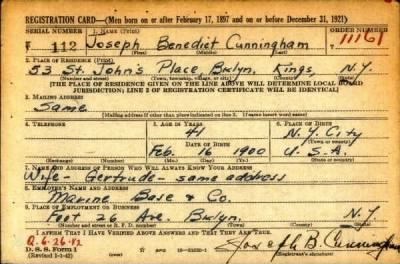 REGISTRATION CARD—(Men born on or after February 17, 1897 and on or before December 31, 1921)
SERIAL NUMBER 1. NAME (Print) ORDER NUMBER
F 112 Joseph Benedict Cunningham 11161
(First) (Middle) (Last)
2. PLACE OF RESIDENCE (Print)
53 St. John's Place Bklyn. Kings, N.Y.
(Number and street) (Town, township, village, or city) (County) (State)
[THE PLACE OF RESIDENCE GIVEN ON THE LINE ABOVE WILL DETERMINE LOCAL BOARD
JURISDICTION; LINE 2 OF REGISTRATION CERTIFICATE WILL BE IDENTICAL]
3. MAILING ADDRESS
Same
[Mailing address if other than place indicated on line 2. If same insert word same]
4. TELEPHONE 5. AGE IN YEARS 6. PLACE OF BIRTH
41 N.Y. City
DATE OF BIRTH (Town or county)
Feb. 16 1900 U.S.A.
(Exchange) (Number) (Mo.) (Day) (Yr.) (State or country)
7. NAME AND ADDRESS OF PERSON WHO WILL ALWAYS KNOW YOUR ADDRESS
Wife - Gertrude - same address
8. EMPLOYER'S NAME AND ADDRESS
Marine Base & Co.
9. PLACE OF EMPLOYMENT OR BUSINESS
Foot 26 Ave. Bklyn. N.Y.
(Number and street or R. F. D. number) (Town) (County) (State)
I AFFIRM THAT I HAVE VERIFIED ABOVE ANSWERS AND THAT THEY ARE TRUE.
Q. 6-26-42
D. S. S. Form 1 Joseph B. Cunningham
(Revised 1-1-42) (Registrant's signature)